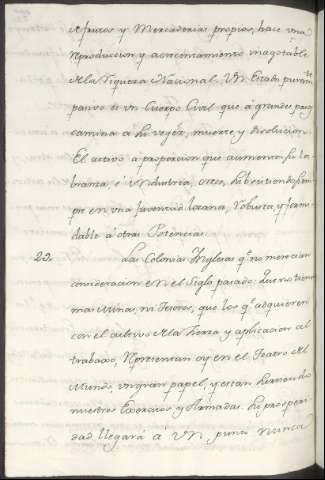 de frutos y Mercaderias propias, hace una
reproduccion y acrecentamiento inagotable
de la riqueza Nacional. Un Estado puram.te
pasivo es un Cuerpo Civil que á grandes pasos
camina á su vejéz, muerte, y disolucion.
El activo á proporcion que aumenta su la-
branza, é industria, crece, subsistiendo siem-
pre en una juventud lozana, robusta, y formi-
dable á otras Potencias.
23. Las Colonias Inglesas q.e no merecian
consideracion en el Siglo pasado: que no tienen
mas Minas, ni Tesoros, que los q.e adquieren
con el cultivo de la tierra y aplicacion al
trabaxo, representan oy en el Teatro del
Mundo, un gran papel, y estan haciendo
nuestros Exercitos y Armadas. Su prosperi-
dad llegará á un punto nunca